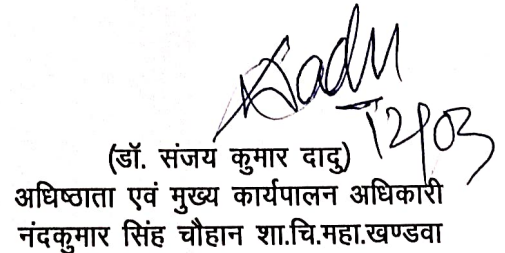 Dadu
12/03
(डॉ. संजय कुमार दादु)
अधिष्ठाता एवं मुख्य कार्यपालन अधिकारी
नंदकुमार सिंह चौहान शा.चि.महा.खण्डवा